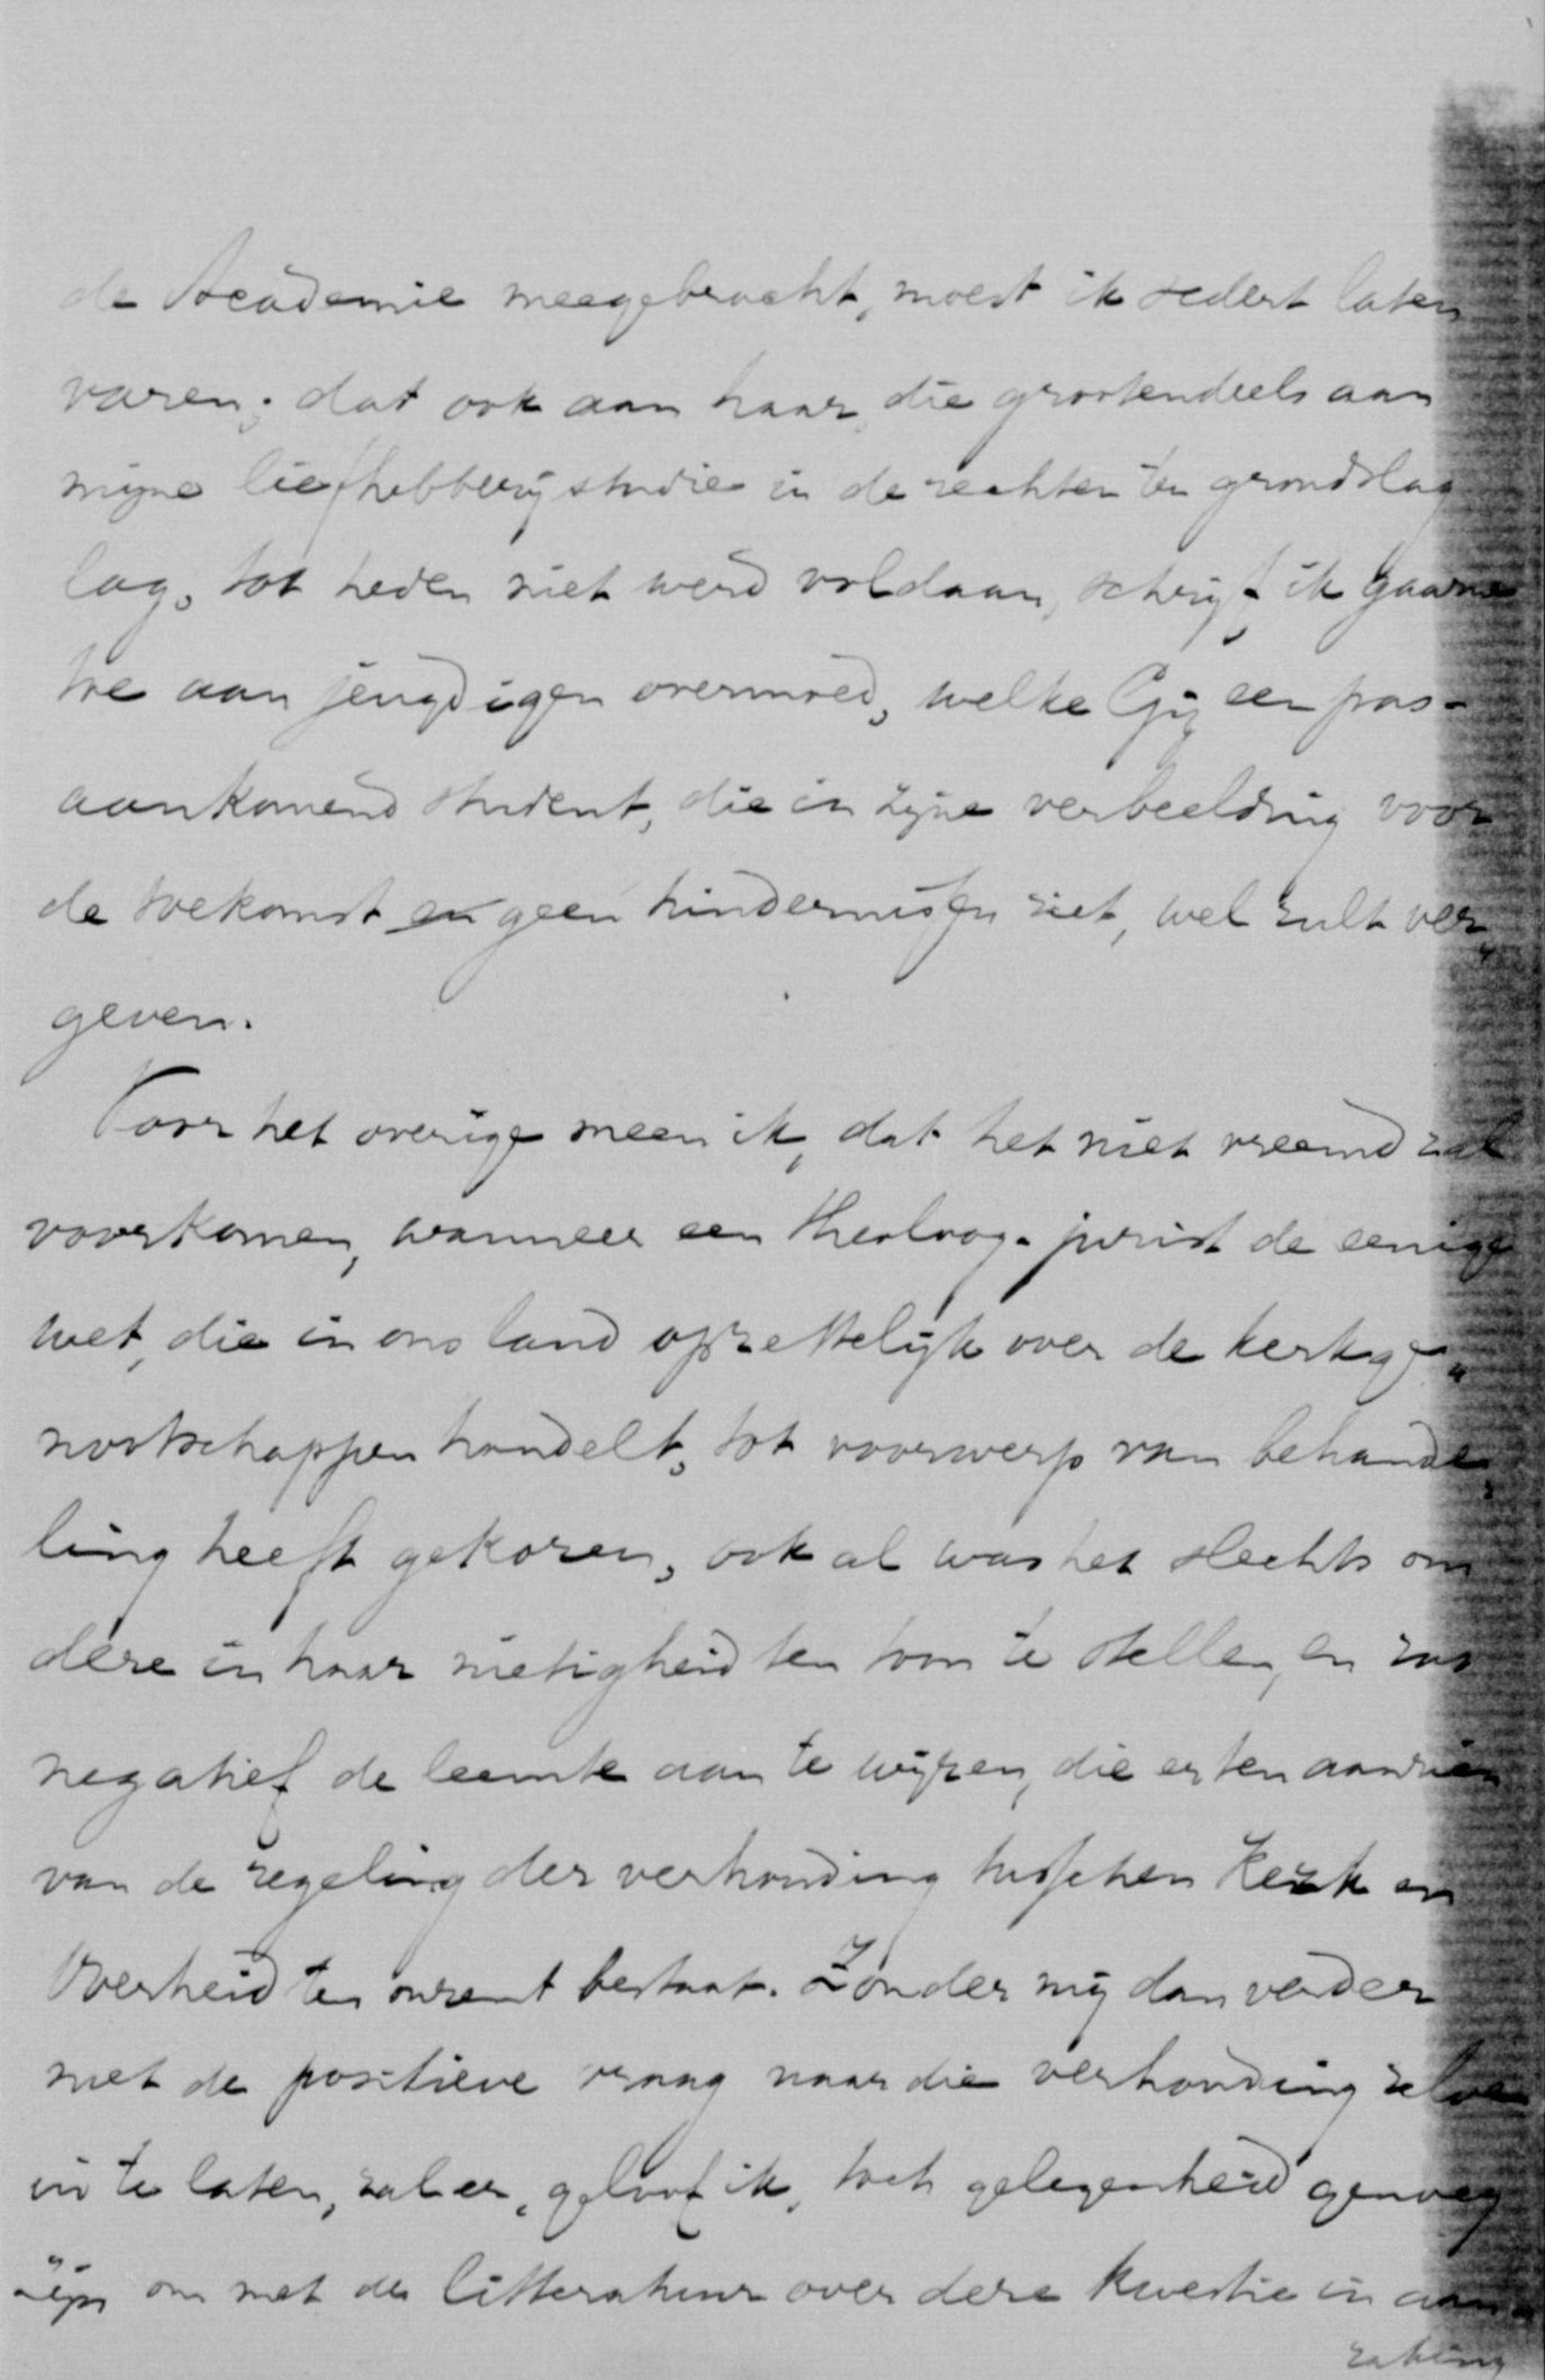 de Academie meegebracht, moest ik sedert laten
varen; dat ook aan haar, die grootendeels aan
mijne liefhebberijstudie in de rechten ten grondslag
lag, tot heden niet werd voldaan, schrijf ik gaarne
toe aan jeugdigen overmoed, welke Gij een pas-
aankomend student, die in zijne verbeelding voor
de toekomst en geen hindernissen ziet, wel zult ver„
geven.
Voor het overige meen ik, dat het niet vreemd zal
voorkomen, wanneer een theoloog-jurist de eenige
wet, die in ons land opzettelijk over de kerkge„
nootschappen handelt, tot voorwerp van behande„
ling heeft gekozen, ook al was het slechts om
deze in haar nietigheid ten toon te stellen, en zoo
negatief de leemte aan te wijzen, die er ten aanzien
van de regeling der verhouding tusschen Kerk en
Overheid ten onzent bestaat. Zonder mij dan verder
met de positieve vraag naar die verhouding zelve
in te laten, zal er, geloof ik, toch gelegenheid genoeg
zijn om met de litteratuur over deze kwestie in aan„
raking